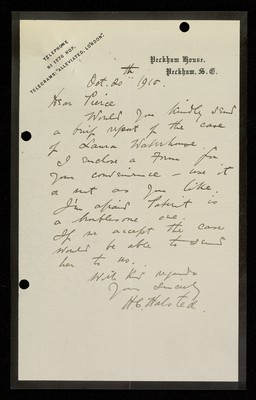 TELEPHONE
No 1576 HOP.
TELEGRAMS: "ALLEVIATED, LONDON".
Peckham House,
Peckham, S.E.
Oct. 20th 1910.
Dear Pierce
Would you kindly send
a brief report of the case
of Laura Waterhouse.
I enclose a Form for
your convenience - use it
or not as you like.
I'm afraid Patient is
a troublesome one.
If we accept the case
would be able to send
her to us.
With kind regards
Yours sincerely
H.C. Halsted.